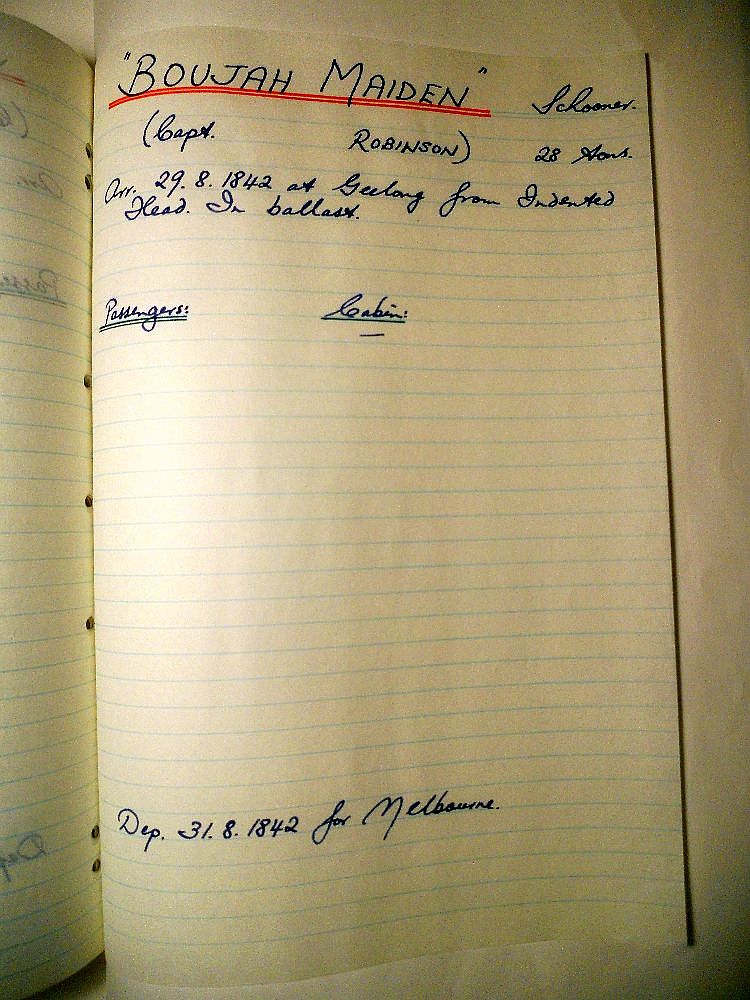 "BOUJAH MAIDEN" Schooner.
(Capt. ROBINSON) 28 tons.
Arr. 29. 8. 1842 at Geelong from Indented
Head. In ballast.
Passengers: Cabin:
—
Dep. 31. 8. 1842 for Melbourne.